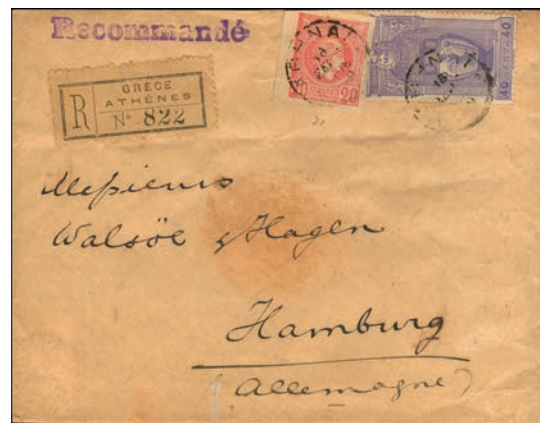 Recommandé
GRÈCE
ATHÈNES
R Nº 822
20
40
40
Messieurs
Walsöe & Hagen
Hamburg
(Allemagne)